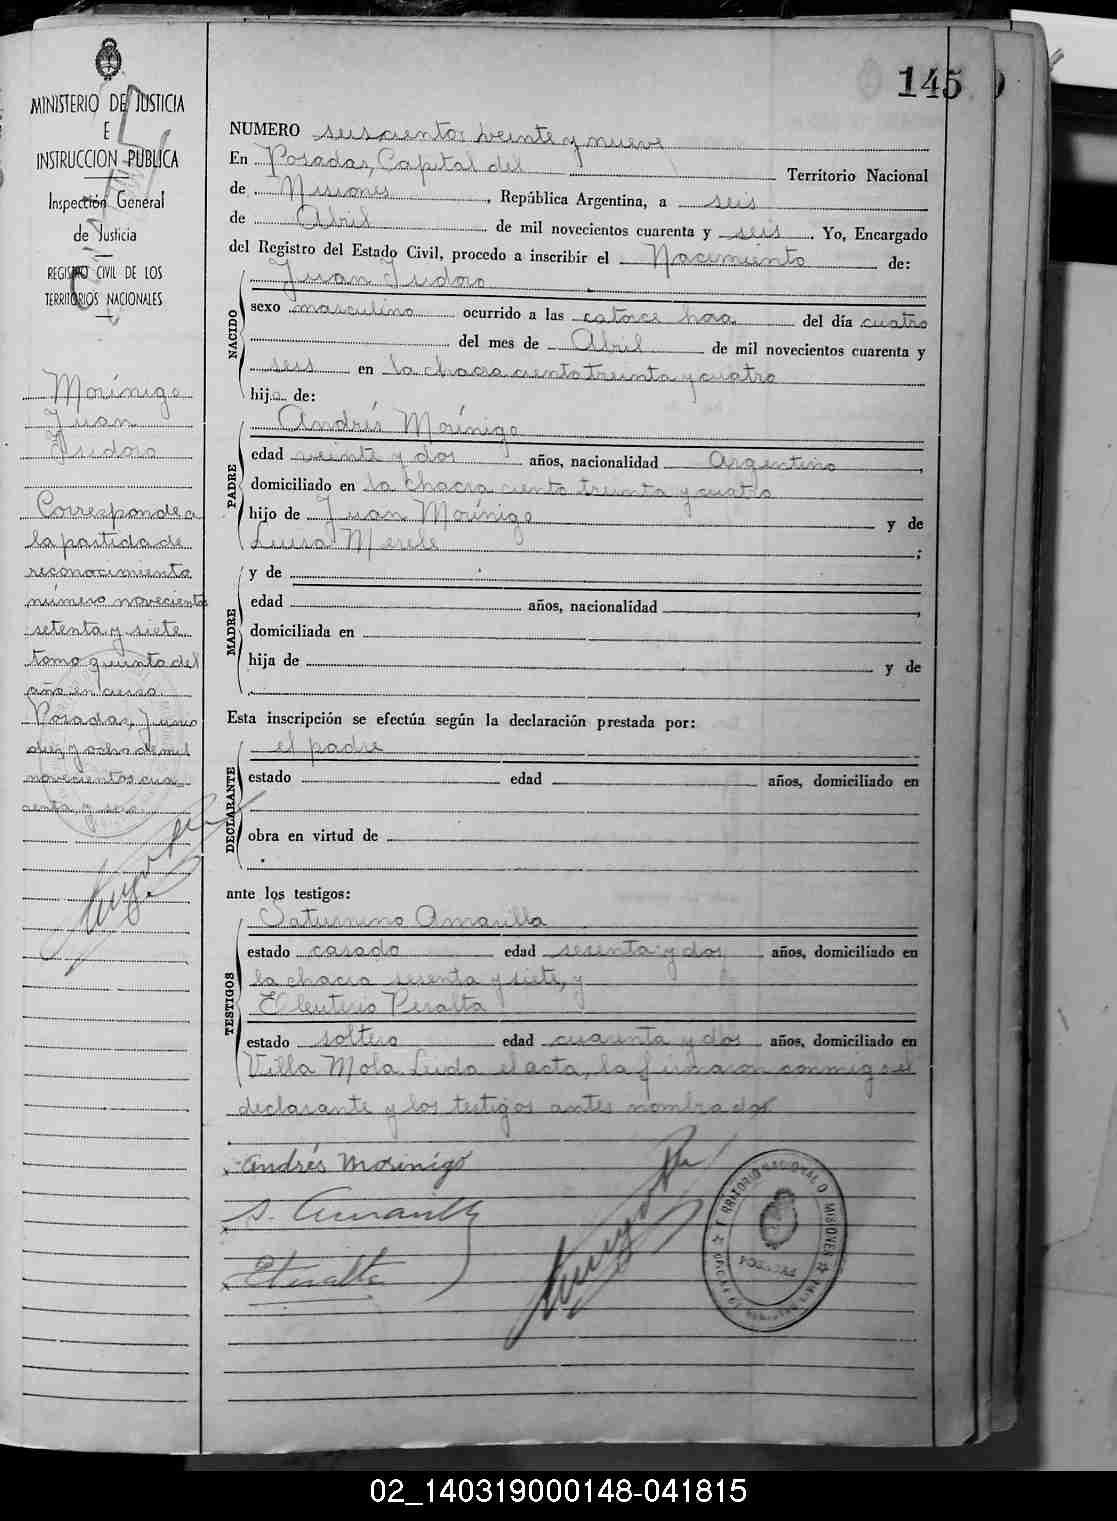 145
MINISTERIO DE JUSTICIA
E
INSTRUCCION PUBLICA
Inspección General
de Justicia
REGISTRO CIVIL DE LOS
TERRITORIOS NACIONALES
Morínigo
Juan
Isidoro
Corresponde a
la partida de
reconocimiento
número novecientos
setenta y siete
tomo quinto del
año en curso.
Posadas, Junio
diez y ocho de mil
novecientos cua-
renta y seis.
NUMERO seiscientos veinte y nueve
En Posadas, Capital del Territorio Nacional
de Misiones, República Argentina, a seis
de Abril de mil novecientos cuarenta y seis. Yo, Encargado
del Registro del Estado Civil, procedo a inscribir el Nacimiento de:
NACIDO
Juan Isidoro
sexo masculino ocurrido a las catorce hora del día cuatro
del mes de Abril de mil novecientos cuarenta y
seis en la chacra ciento treinta y cuatro
hijo de:
PADRE
Andrés Morínigo
edad veinte y dos años, nacionalidad Argentino,
domiciliado en la chacra ciento treinta y cuatro
hijo de Juan Morínigo y de
Luisa Merele;
MADRE
y de
edad años, nacionalidad ,
domiciliada en
hija de y de
Esta inscripción se efectúa según la declaración prestada por:
DECLARANTE
el padre
estado edad años, domiciliado en
obra en virtud de
ante los testigos:
TESTIGOS
Saturnino Amarilla
estado casado edad sesenta y dos años, domiciliado en
la chacra sesenta y siete, y
Eleuterio Peralta
estado soltero edad cuarenta y dos años, domiciliado en
Villa Mola. Leida el acta, la firmaron conmigo el
declarante y los testigos antes nombrados
Andrés Morinigo
S. Amarilla
EPeralta
TERRITORIO NACIONAL D MISIONES
POSADAS
02_140319000148-041815